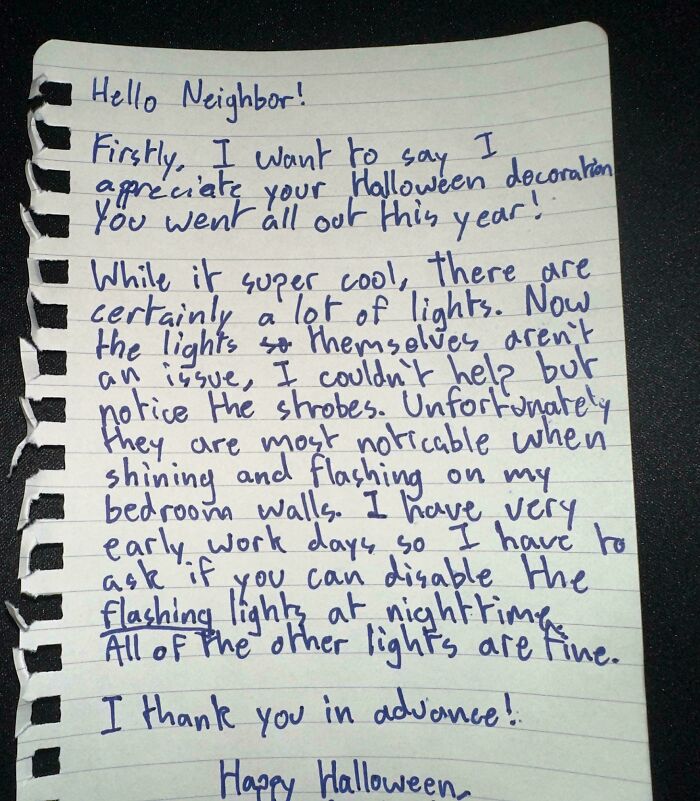 Hello Neighbor!
Firstly, I want to say I
appreciate your Halloween decoration
You went all out this year!
While it super cool, there are
certainly a lot of lights. Now
the lights so themselves aren't
an issue, I couldn't help but
notice the strobes. Unfortunately
they are most noticable when
shining and flashing on my
bedroom walls. I have very
early work days so I have to
ask if you can disable the
flashing lights at nighttime.
All of the other lights are fine.
I thank you in advance!
Happy Halloween,